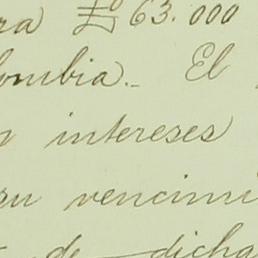 ra £ 63.000
ombia._ El
intereses
su vencimi
de dicha